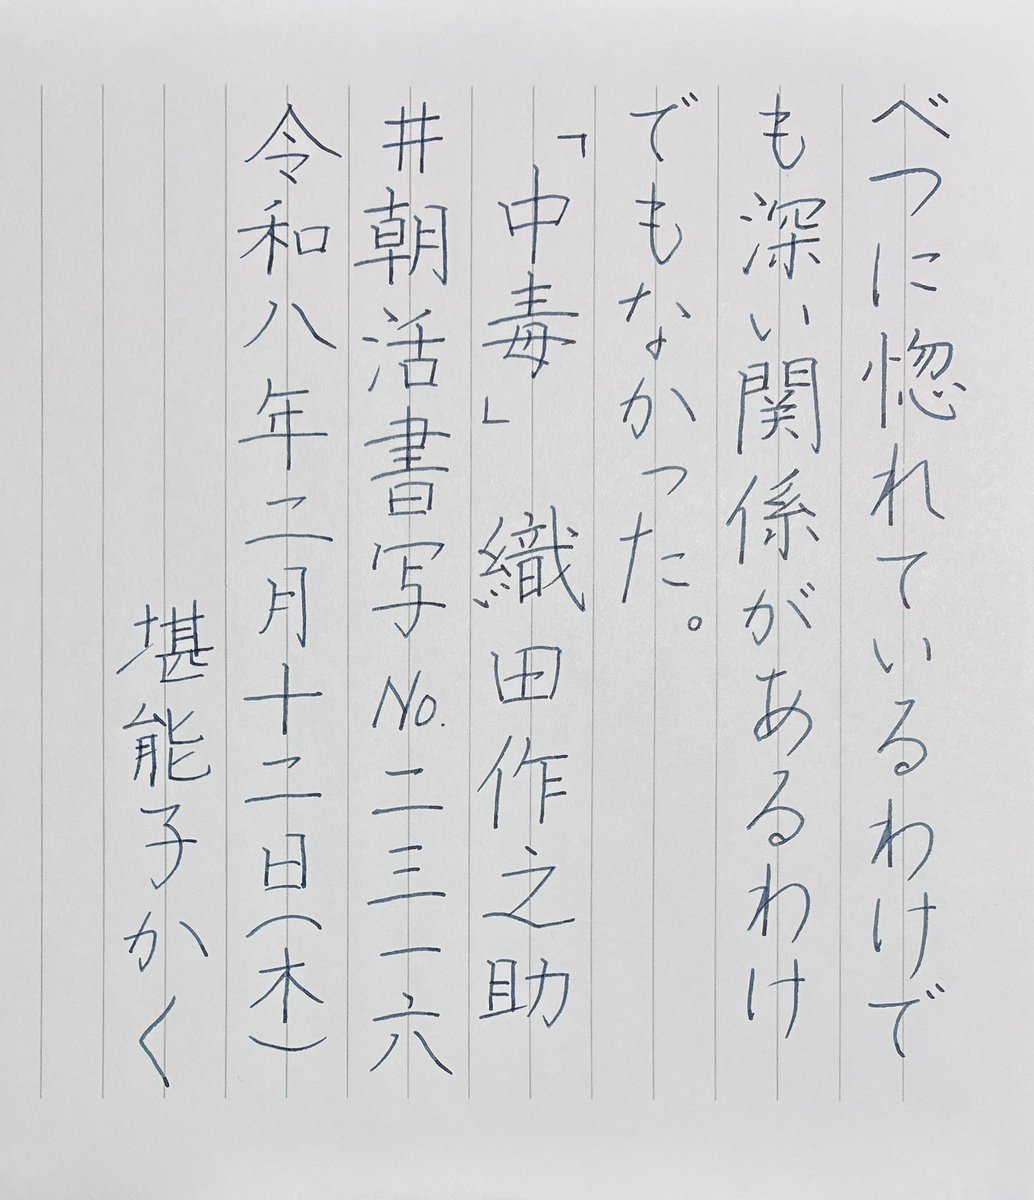 べつに惚れているわけで
も深い関係があるわけ
でもなかった。
「中毒」 織田作之助
#朝活書写No.二三一六
令和八年二月十二日(木)
堪能子かく